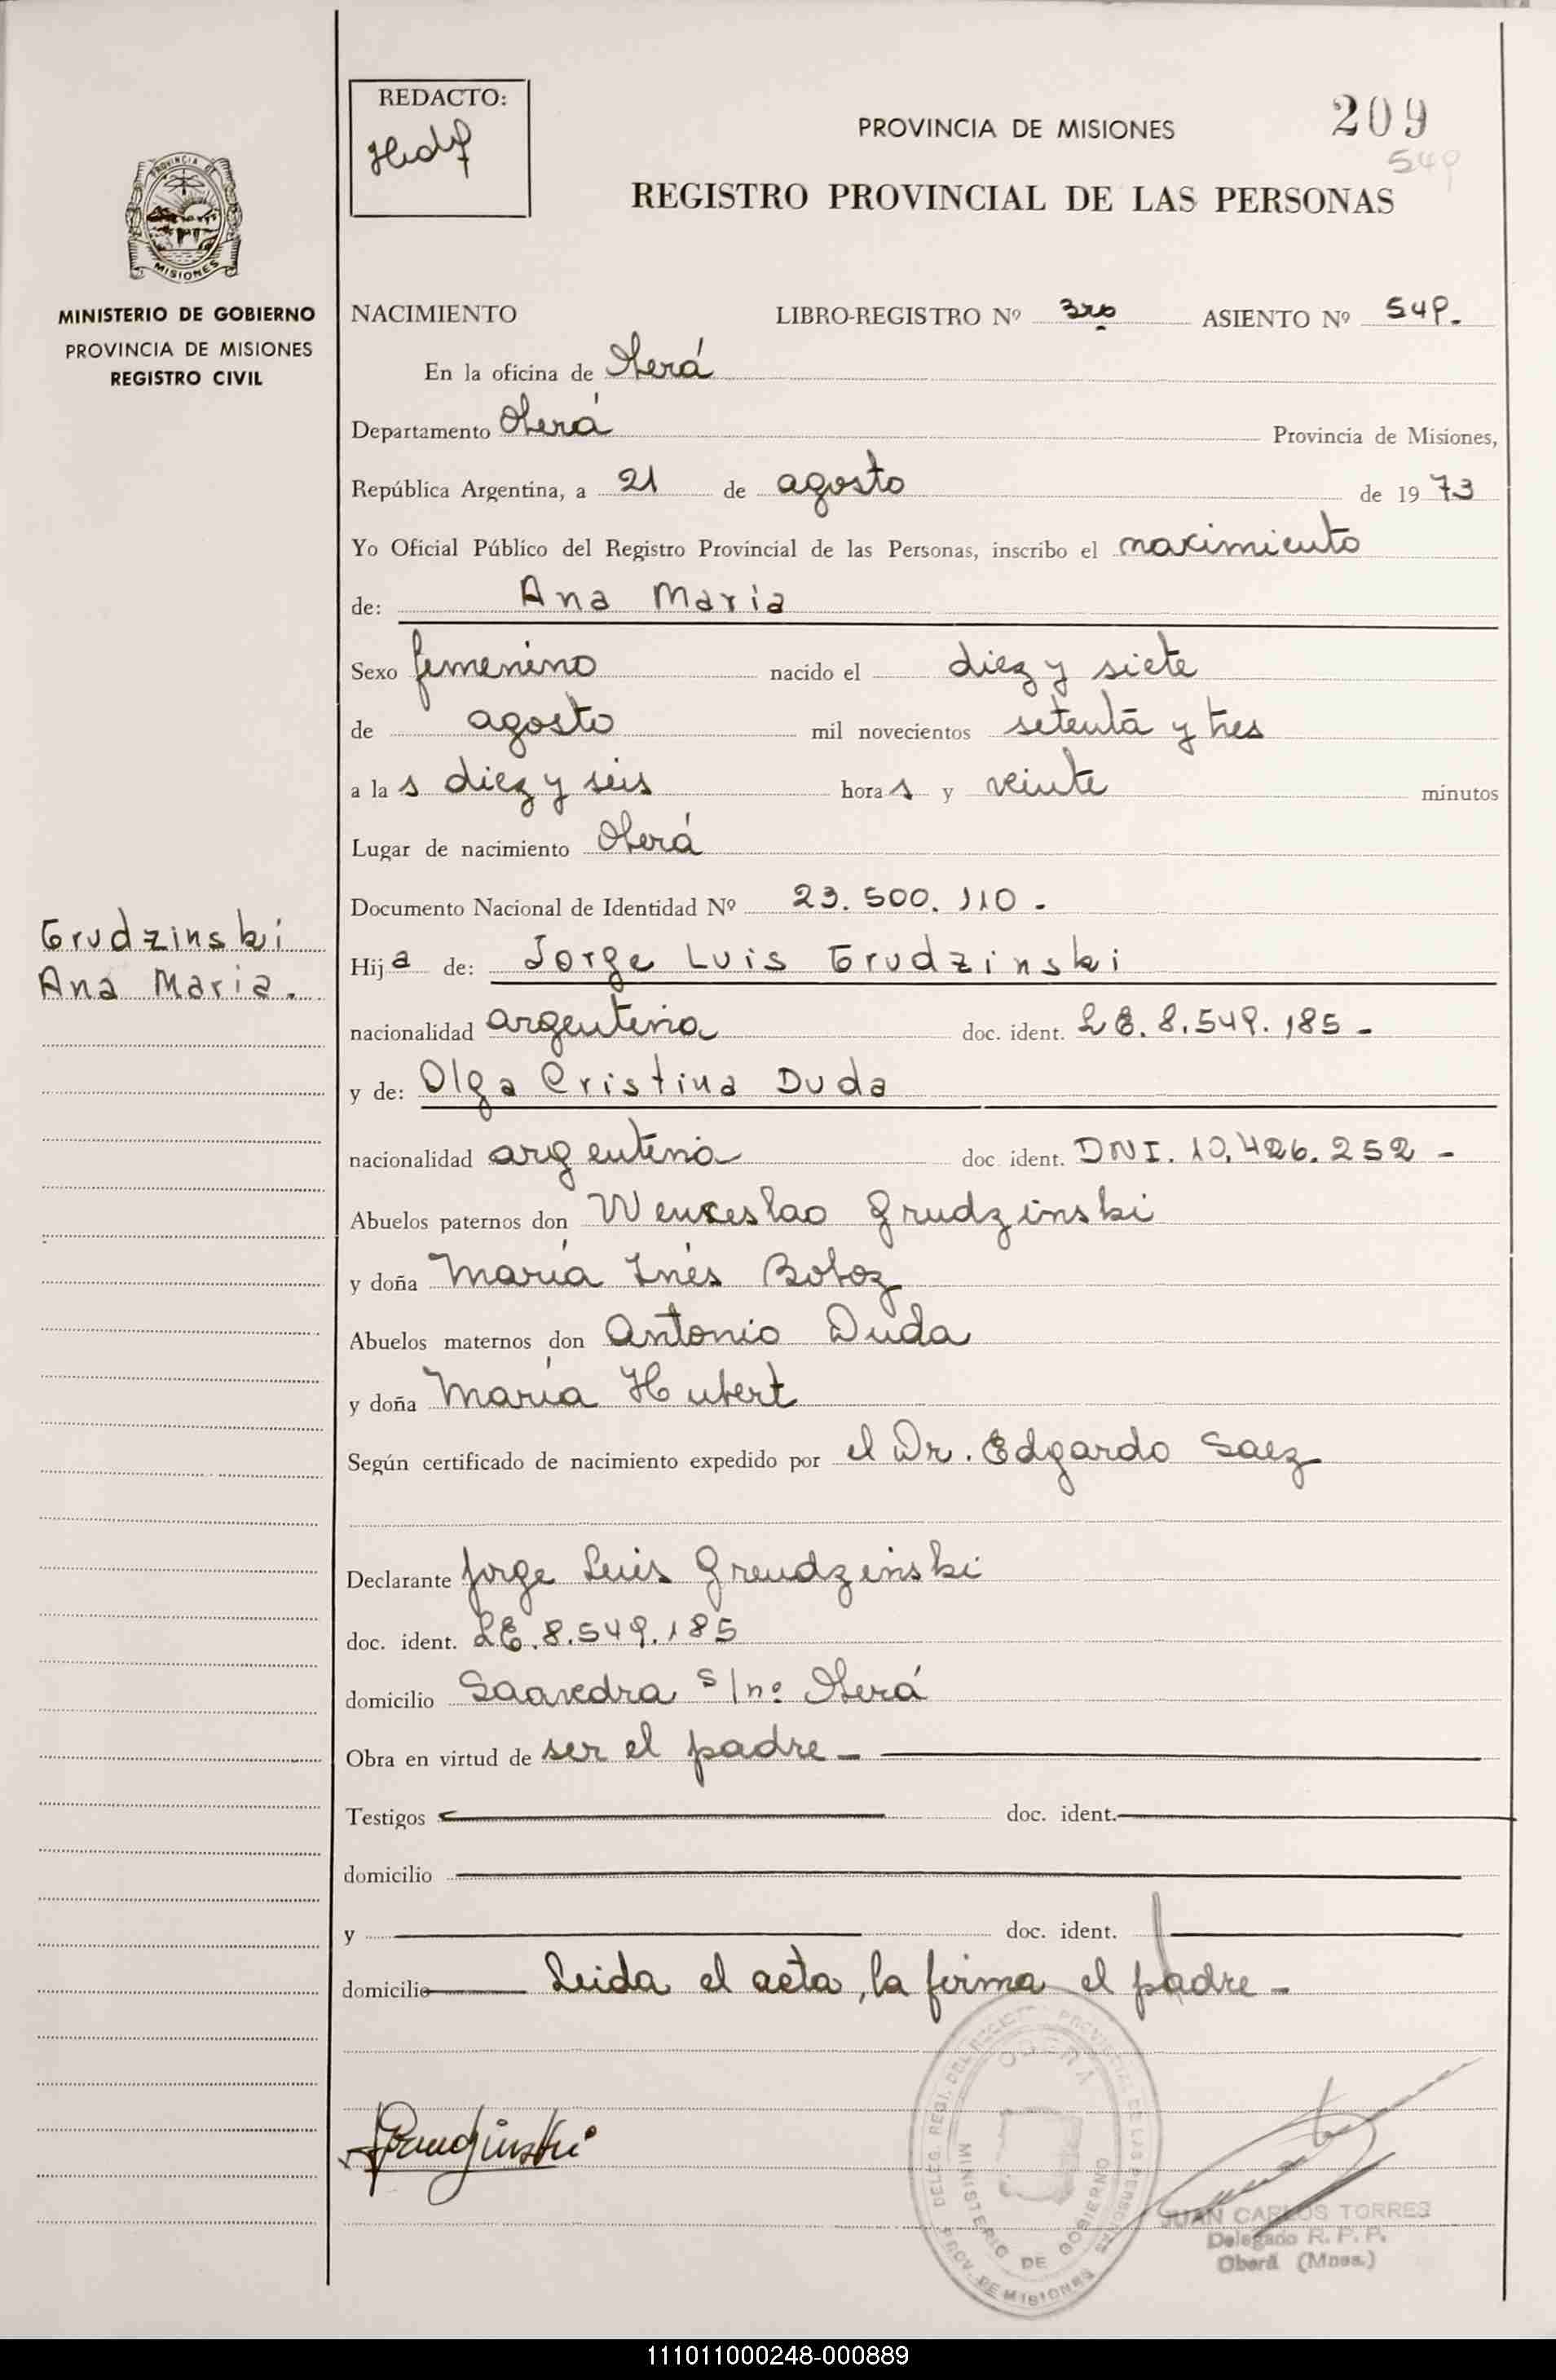 REDACTO:
PROVINCIA DE MISIONES
209
549
REGISTRO PROVINCIAL DE LAS PERSONAS
PROVINCIA DE
MISIONES
MINISTERIO DE GOBIERNO
PROVINCIA DE MISIONES
REGISTRO CIVIL
NACIMIENTO LIBRO-REGISTRO Nº 3ro ASIENTO Nº 549.
En la oficina de Oberá
Departamento Oberá Provincia de Misiones,
República Argentina, a 21 de agosto de 1973
Yo Oficial Público del Registro Provincial de las Personas, inscribo el nacimiento
de: Ana Maria
Sexo femenino nacido el diez y siete
de agosto mil novecientos setenta y tres
a las diez y seis horas y veinte minutos
Lugar de nacimiento Oberá
Documento Nacional de Identidad Nº 23.500.110.-
Grudzinski
Ana Maria.
Hija de: Jorge Luis Grudzinski
nacionalidad argentina doc. ident. LE. 8.549.185-
y de: Olga Cristina Duda
nacionalidad argentina doc. ident. DNI. 10.426.252-
Abuelos paternos don Wenceslao Grudzinski
y doña María Inés Boboz
Abuelos maternos don Antonio Duda
y doña María Hubert
Según certificado de nacimiento expedido por el Dr. Edgardo Saez
Declarante Jorge Luis Grudzinski
doc. ident. LE. 8.549.185
domicilio Saavedra s/nº Oberá
Obra en virtud de ser el padre-
Testigos doc. ident.
domicilio
y doc. ident.
domicilio Leida el acta, la firma el padre-
DELEG. REGI. DEL REGIST. PROVINCIAL DE LAS PERSONAS
OBERÁ
MINISTERIO DE GOBIERNO
PROV. DE MISIONES
JUAN CARLOS TORRES
Delegado R. P. P.
Oberá (Mnes.)
111011000248-000889